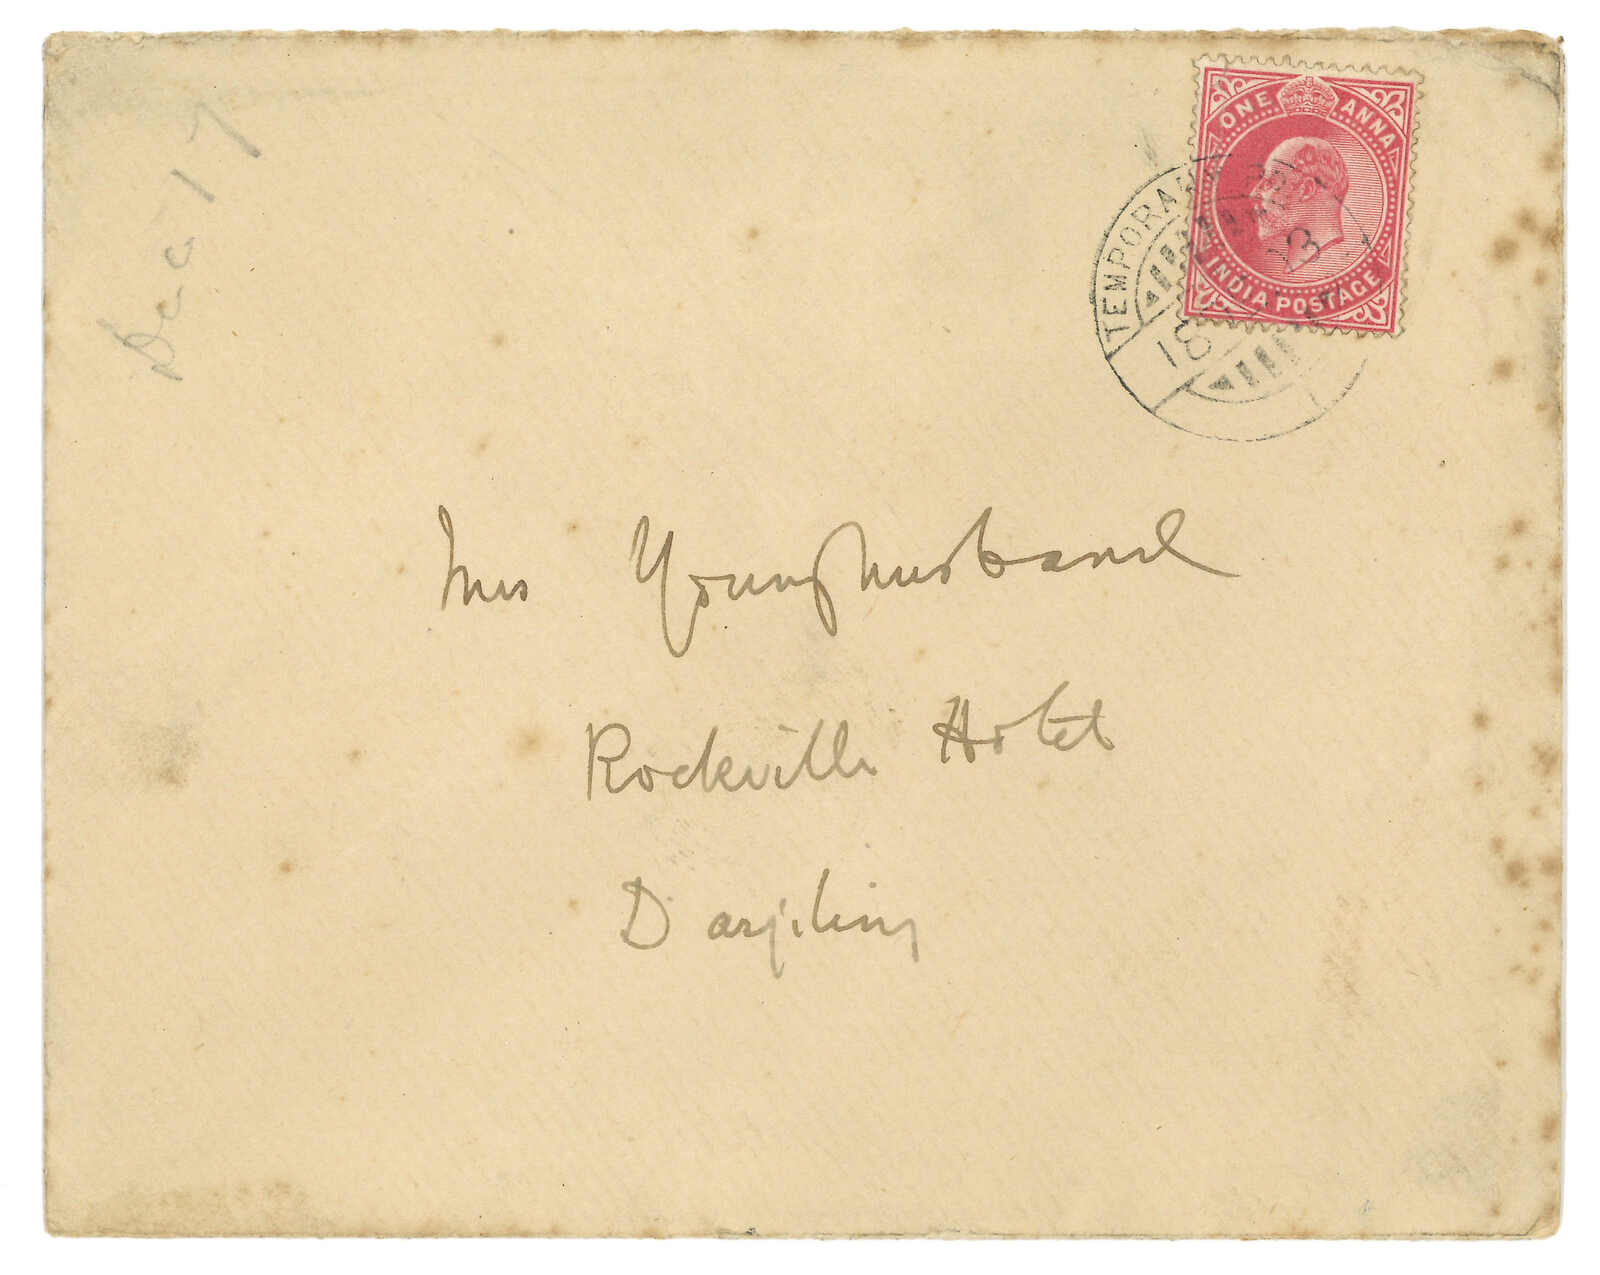 Dec 17
ONE ANNA
INDIA POSTAGE
TEMPORARY
18
Mrs Younghusband
Rockville Hotel
Darjiling